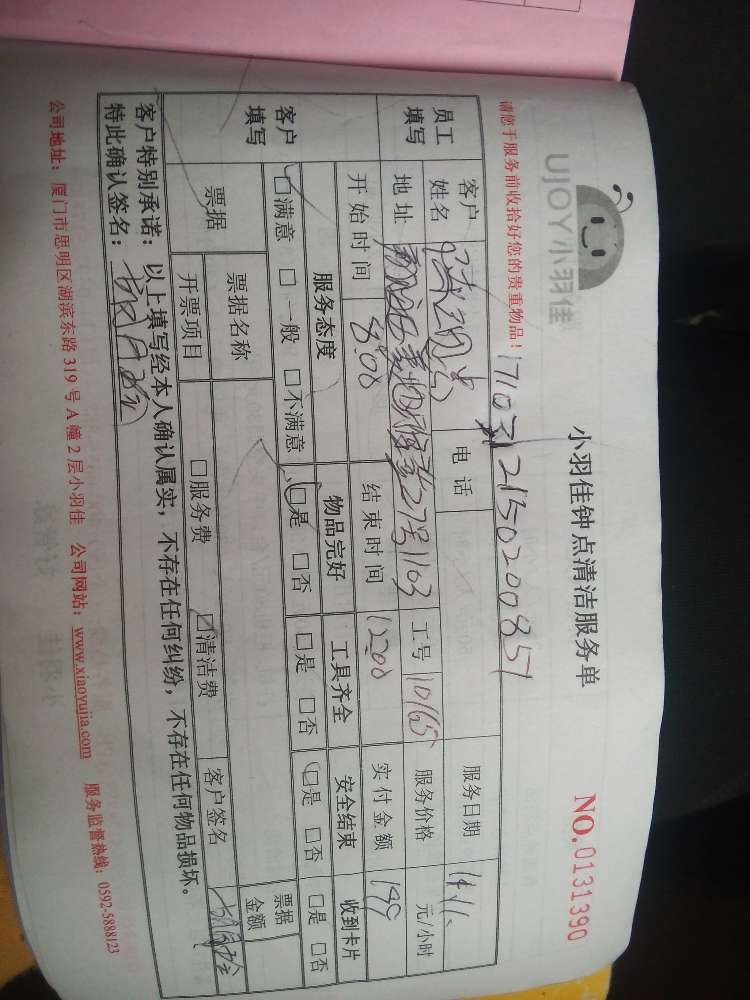 UJOY小羽佳
小羽佳钟点清洁服务单
NO.0131390
请您于服务前收拾好您的贵重物品！
215020085
员工填写 客户姓名 电话 服务日期 14.11.
地址 27号1103 工号 10165 服务价格 元/小时
客户填写 开始时间 8:00 结束时间 12:00 实付金额 149
服务态度 物品完好 工具齐全 安全结束 收到卡片
□满意 □一般 □不满意 □是 □否 □是 □否 □是 □否 □是 □否
票据 票据名称 票据金额
开票项目 □服务费 □清洁费 客户签名
客户特别承诺：以上填写经本人确认属实，不存在任何纠纷，不存在任何物品损坏。
特此确认签名：
公司地址：厦门市思明区湖滨东路319号A幢2层小羽佳 公司网站：www.xiaoyujia.com 服务监督热线：0592-5888123